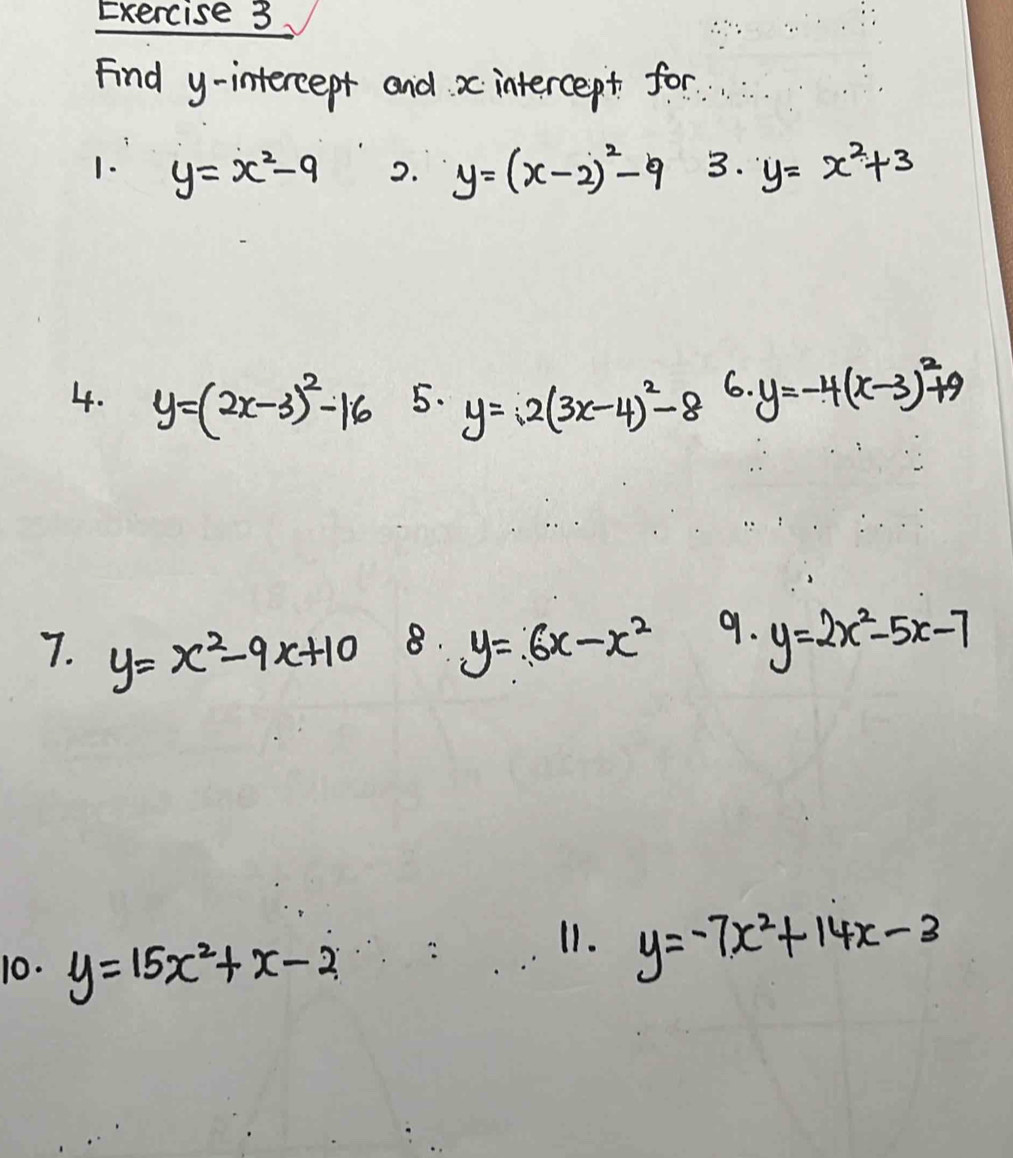 Exercise 3 ✓
Find y-intercept and x intercept for
1. y = x² - 9 2. y = (x - 2)² - 9 3. y = x² + 3
4. y = (2x - 3)² - 16 5. y = 2(3x - 4)² - 8 6. y = -4(x - 3)² + 9
7. y = x² - 9x + 10 8. y = 6x - x² 9. y = 2x² - 5x - 7
10. y = 15x² + x - 2 11. y = -7x² + 14x - 3